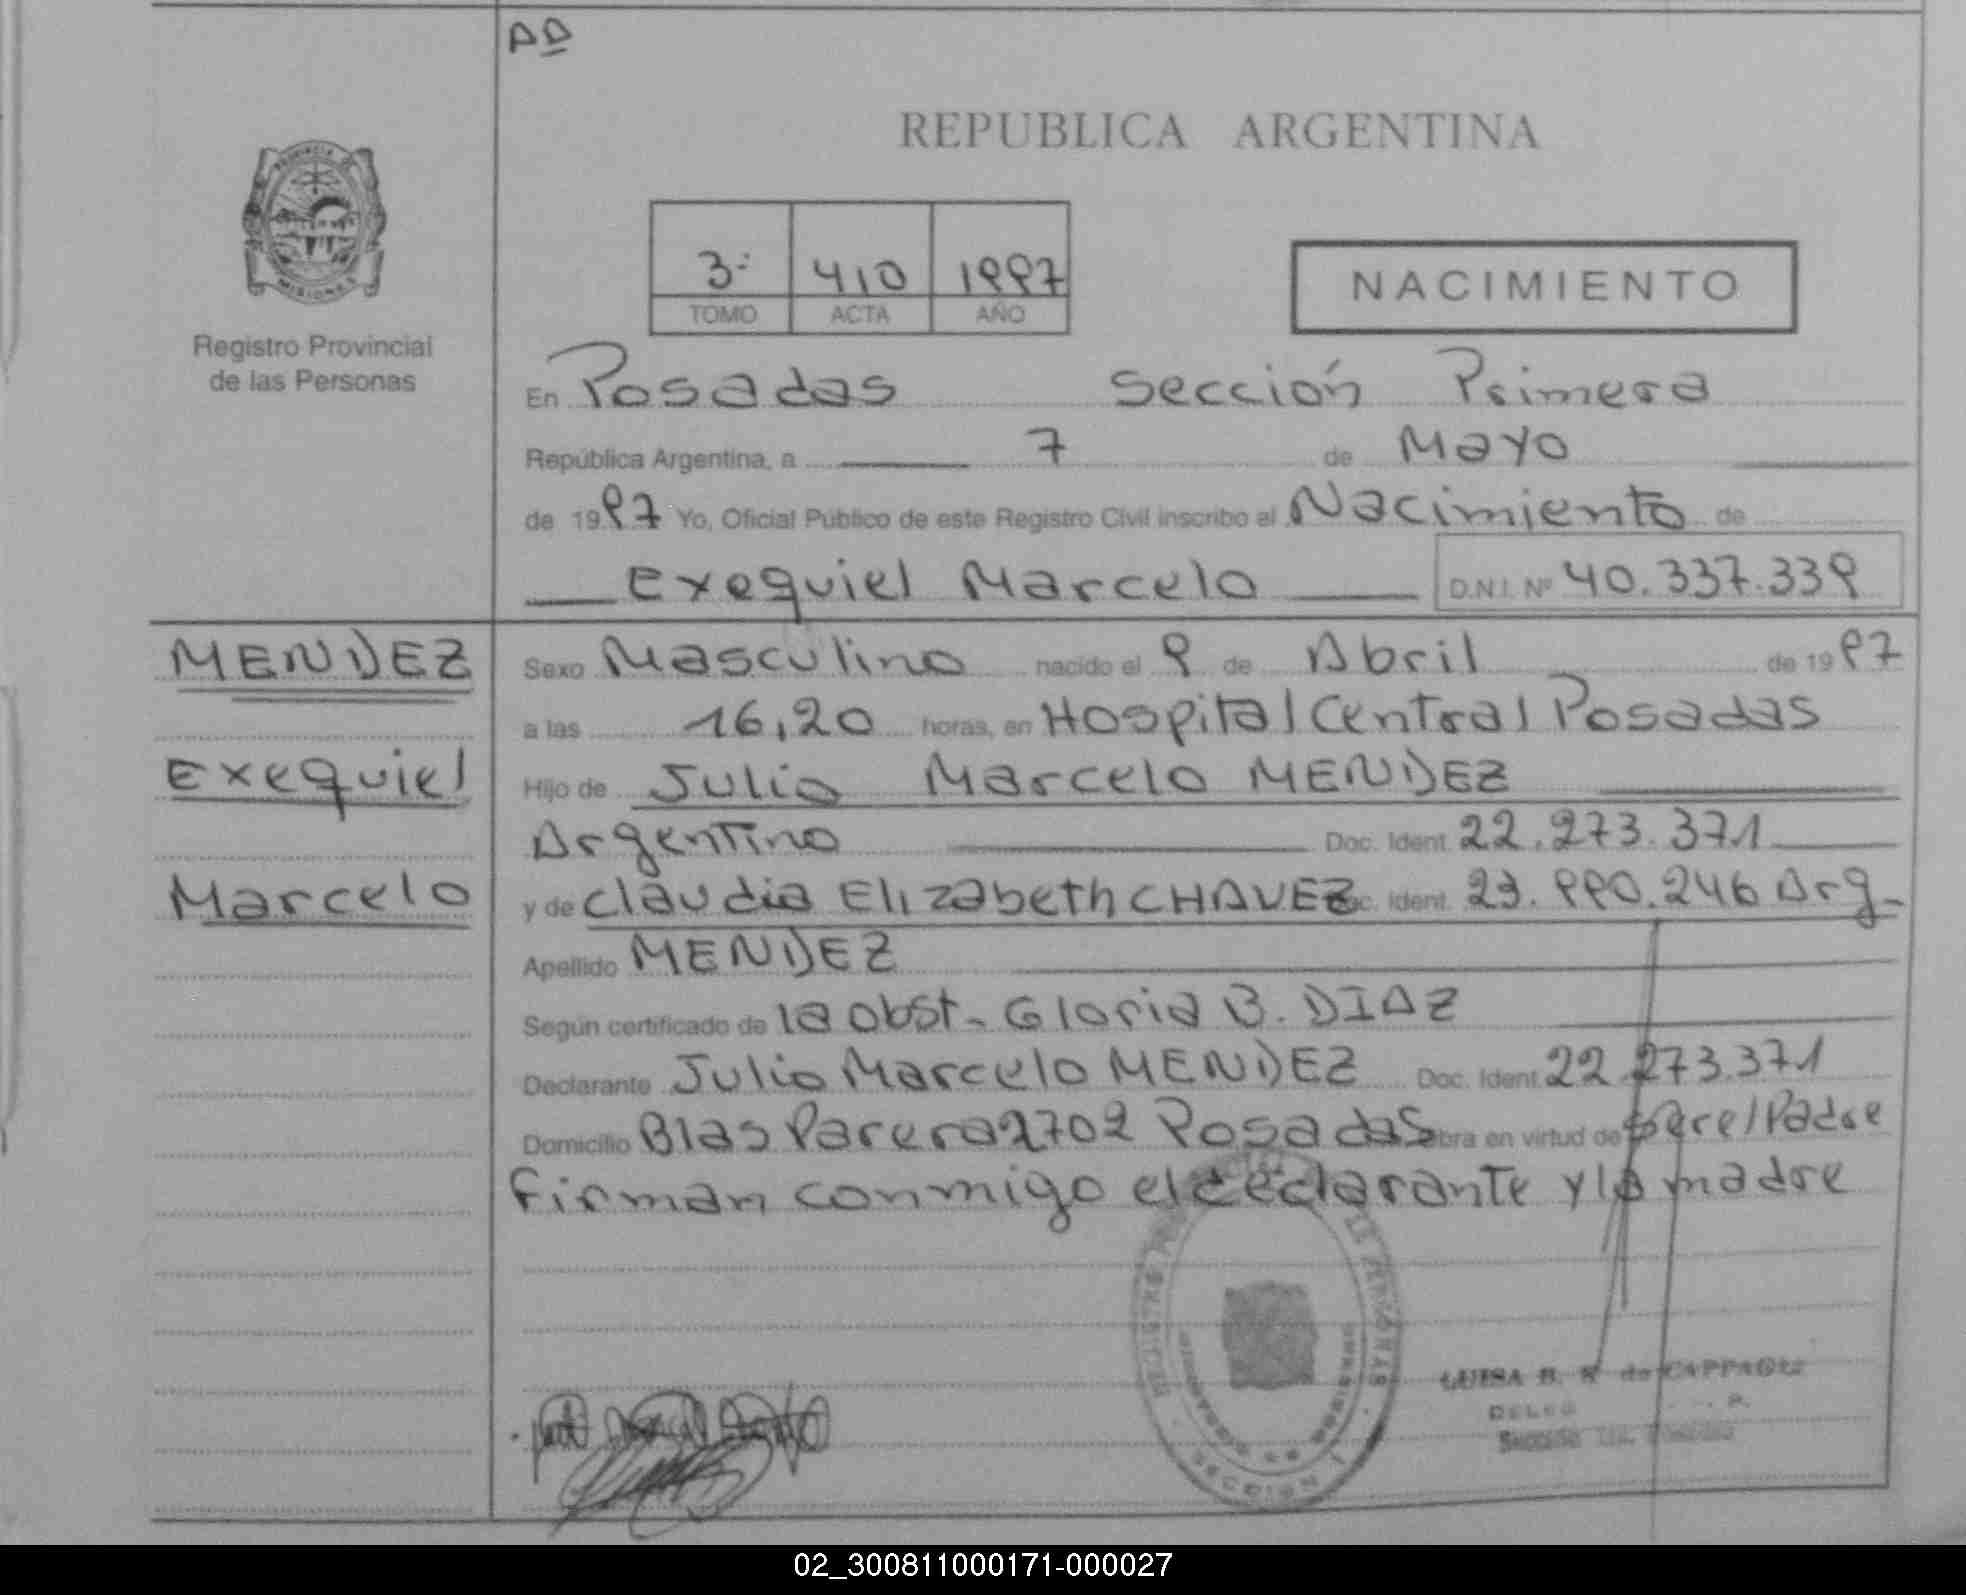 AD
REPUBLICA ARGENTINA
PROVINCIA DE
MISIONES
Registro Provincial
de las Personas
3º 410 1997
TOMO ACTA AÑO
NACIMIENTO
En Posadas Sección Primera
República Argentina, a 7 de Mayo
de 1997 Yo, Oficial Público de este Registro Civil inscribo al Nacimiento de
Exequiel Marcelo D.N.I. Nº 40.337.339
MENDEZ
Exequiel
Marcelo
Sexo Masculino nacido el 9 de Abril de 1997
a las 16,20 horas, en Hospital Central Posadas
Hijo de Julio Marcelo MENDEZ
Argentino Doc. Ident. 22.273.371
y de Claudia Elizabeth CHAVEZ Doc. Ident. 23.990.246 Arg.
Apellido MENDEZ
Según certificado de la Obst. Gloria B. DIAZ
Declarante Julio Marcelo MENDEZ Doc. Ident. 22.273.371
Domicilio Blas Parera 2702 Posadas obra en virtud de ser el Padre
Firman conmigo el declarante y la madre
SECCION 1
LUISA B. de CAPPAGLI
02_300811000171-000027